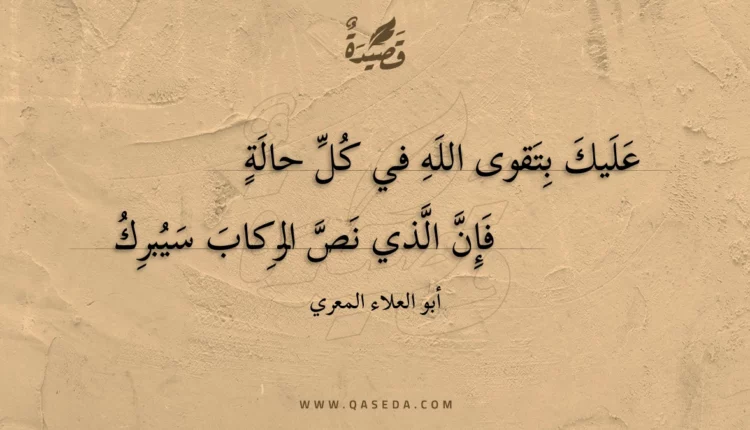 قَصِيدَةٌ
عَلَيكَ بِتَقوى اللَهِ في كُلِّ حالَةٍ
فَإِنَّ الَّذي نَصَّ الرِكابَ سَيُبرِكُ
أبو العلاء المعري
WWW.QASEDA.COM